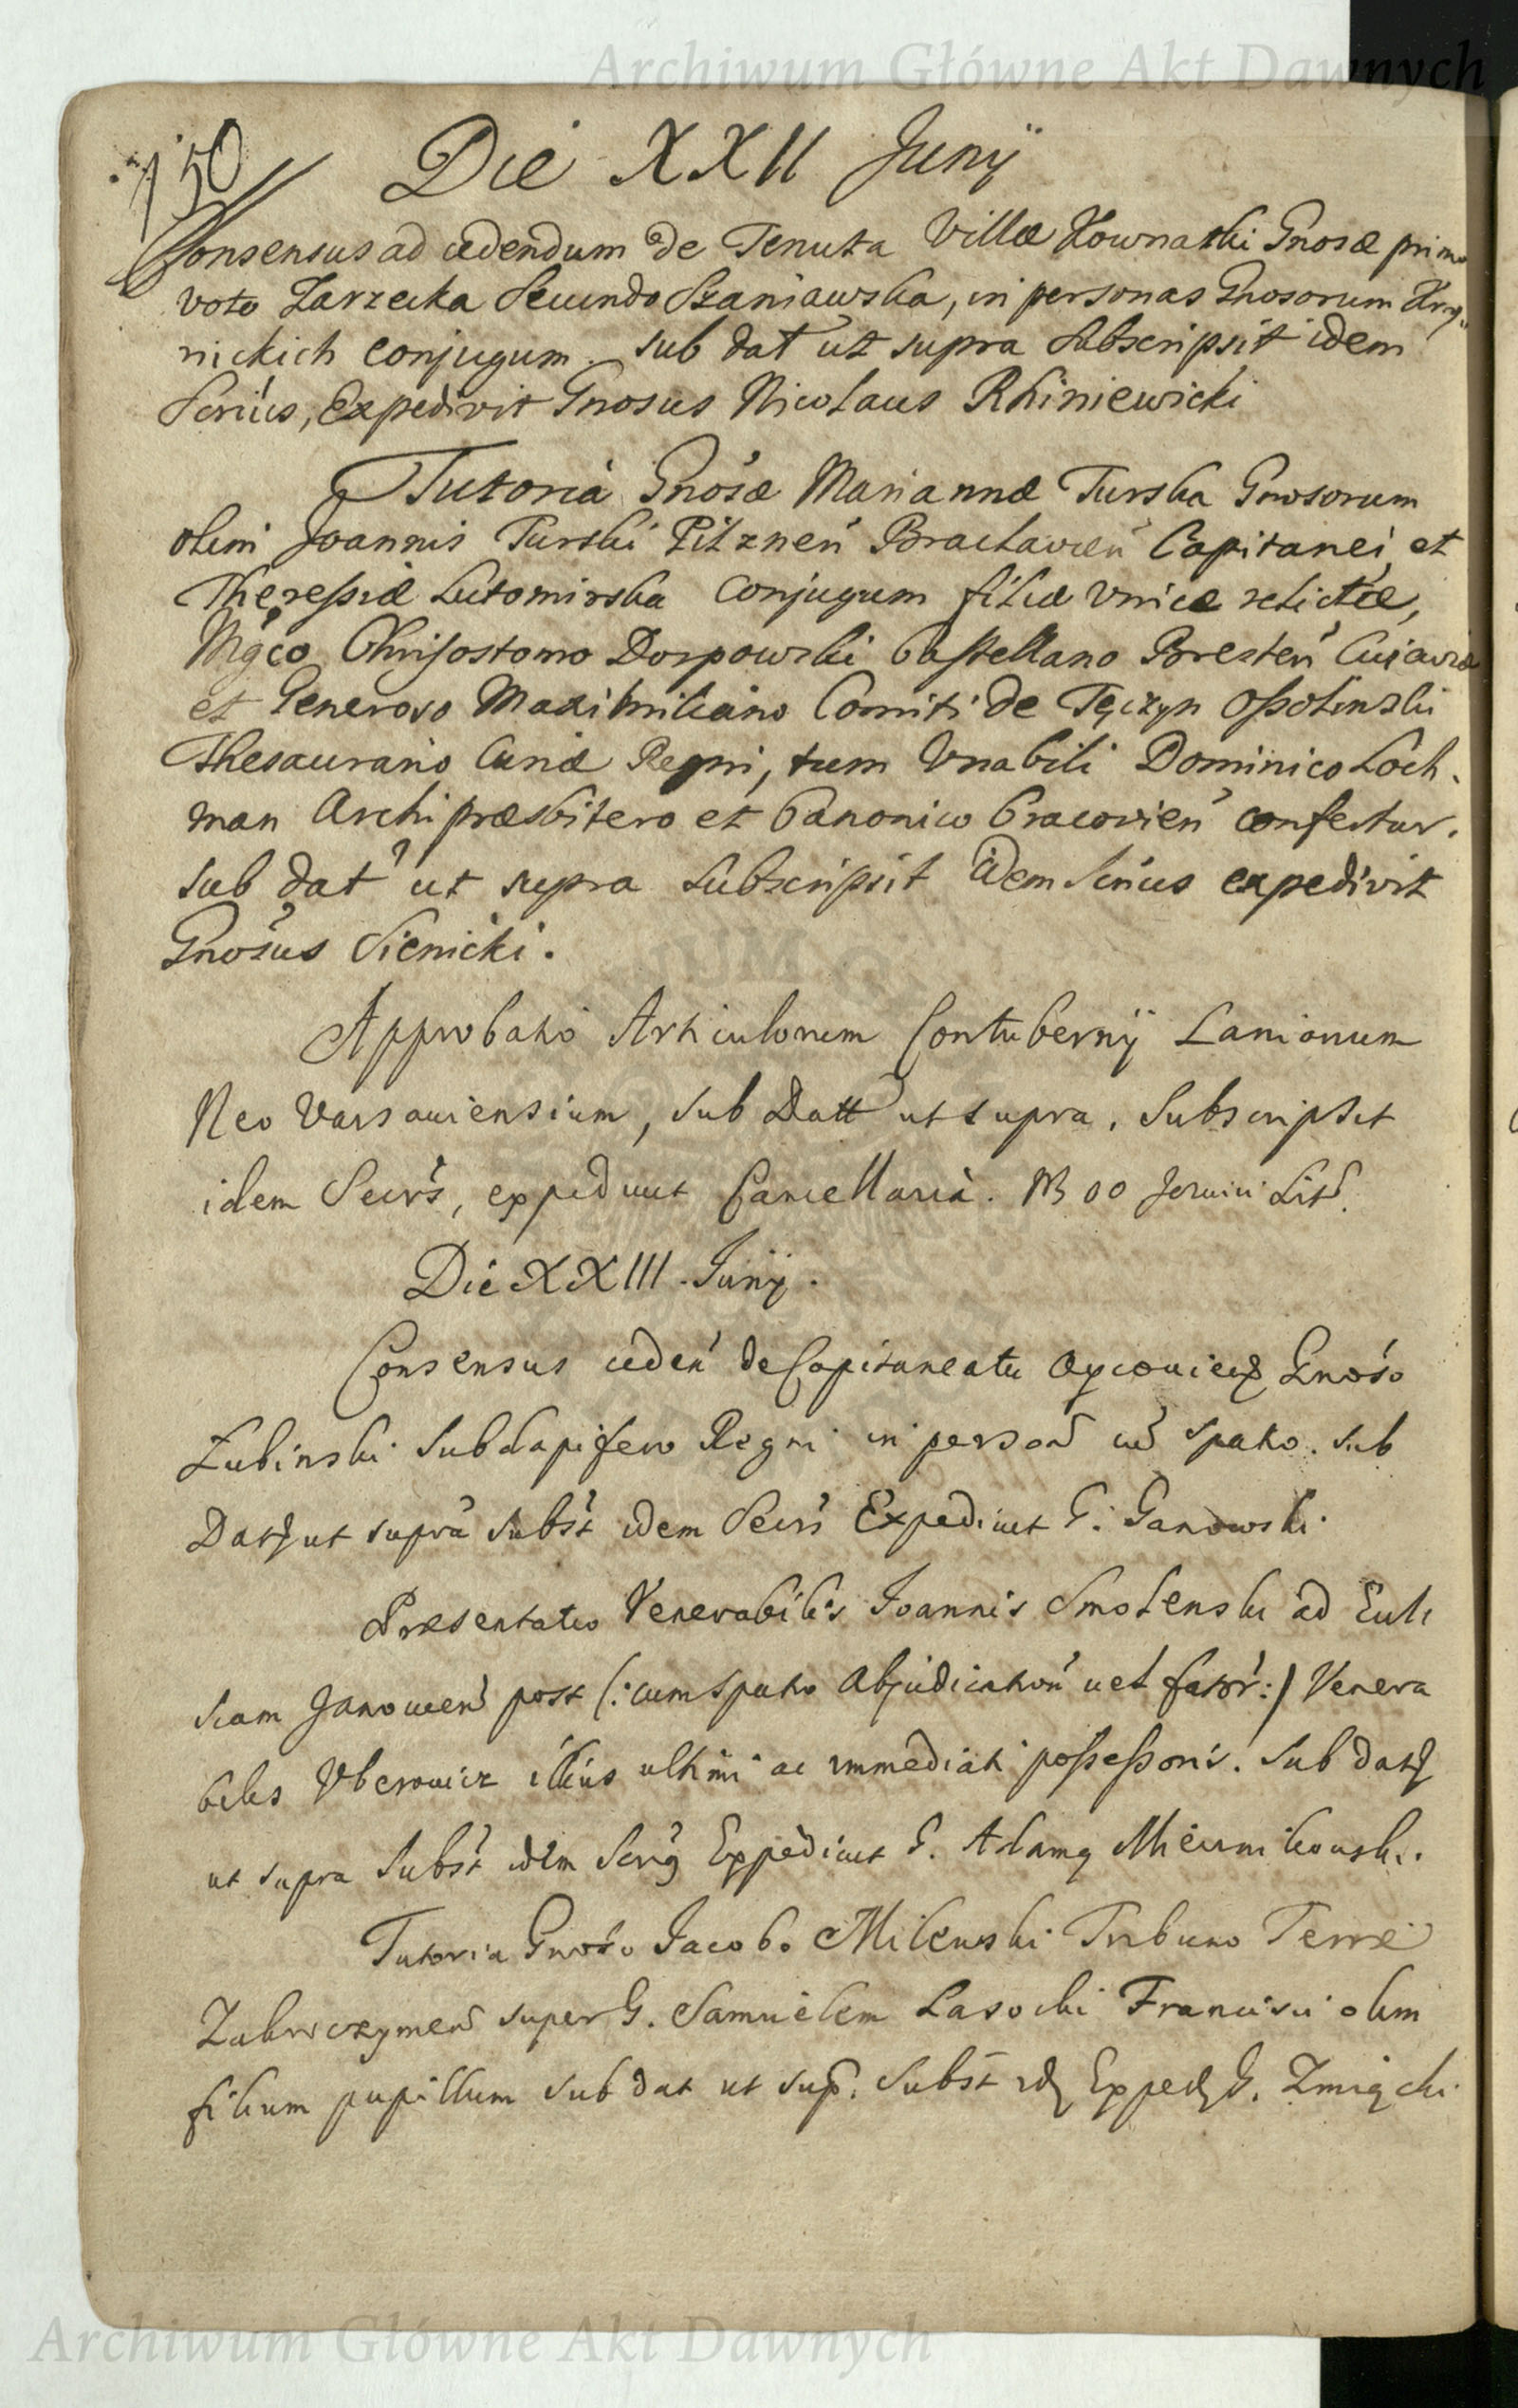 Archiwum Główne Akt Dawnych
150
Die XXII Junij
Consensus ad cedendum de Tenuta Villæ Kownatki Gnosæ primo
voto Zarzecka Secundo Szaniawska, in personas Gnosorum Kry
nickich conjugum. sub dat ut supra subscripsit idem
Serius, Expedivit Gnosus Nicolaus Rhiniewicki
Tutoria Gnosæ Mariannæ Turska Gnosorum
olim Joannis Turski Pilznen Braclavien Capitanei et
Theressiæ Lutomirska Conjugum filiæ Unicæ relictæ,
Mgco Chrisostomo Dorpowski Castellano Bresten Cujaviæ
et Generoso Maximiliano Comiti de Tęczyn Ossolinski
Thesaurario Curiæ Regni, tum Vnabili Dominico Loch.
man Archipræsbitero et Canonico Cracovien confertur.
sub dat ut supra subscripsit idem Serius expedivit
Gnosus Sienicki.
Approbatio Articulorum Contubernij Lanionum
Neo Varsaviensium, sub Datt ut supra. Subscripsit
idem Secrs, expedivit Cancellaria. NB 00 Lit
Die XXIII. Junij.
Consensus ceden de Capitaneatu Gnoso
Łubinski Subdapifero Regni in person cu spatio. sub
Datt ut supra Subst idem Secrs Expedivit G. Ganowski.
Præsentatio Venerabilis Joannis Smolenski ad Eccle
siam Janovien post (: cum spatio abjudication vel fator :) Venera
bilis Uberowicz illius ultimi ac immediati possessoris. Sub datt
ut supra Subst idem Serius Expedivit G. Adamus
Tutoria Gnoso Jacobo Milewski Tribuno Terræ
Zakroczymen super G. Samuelem Lasocki Francisci olim
filium pupillum sub dat ut sup. Subst id Exped G. Zmigcki
Archiwum Główne Akt Dawnych